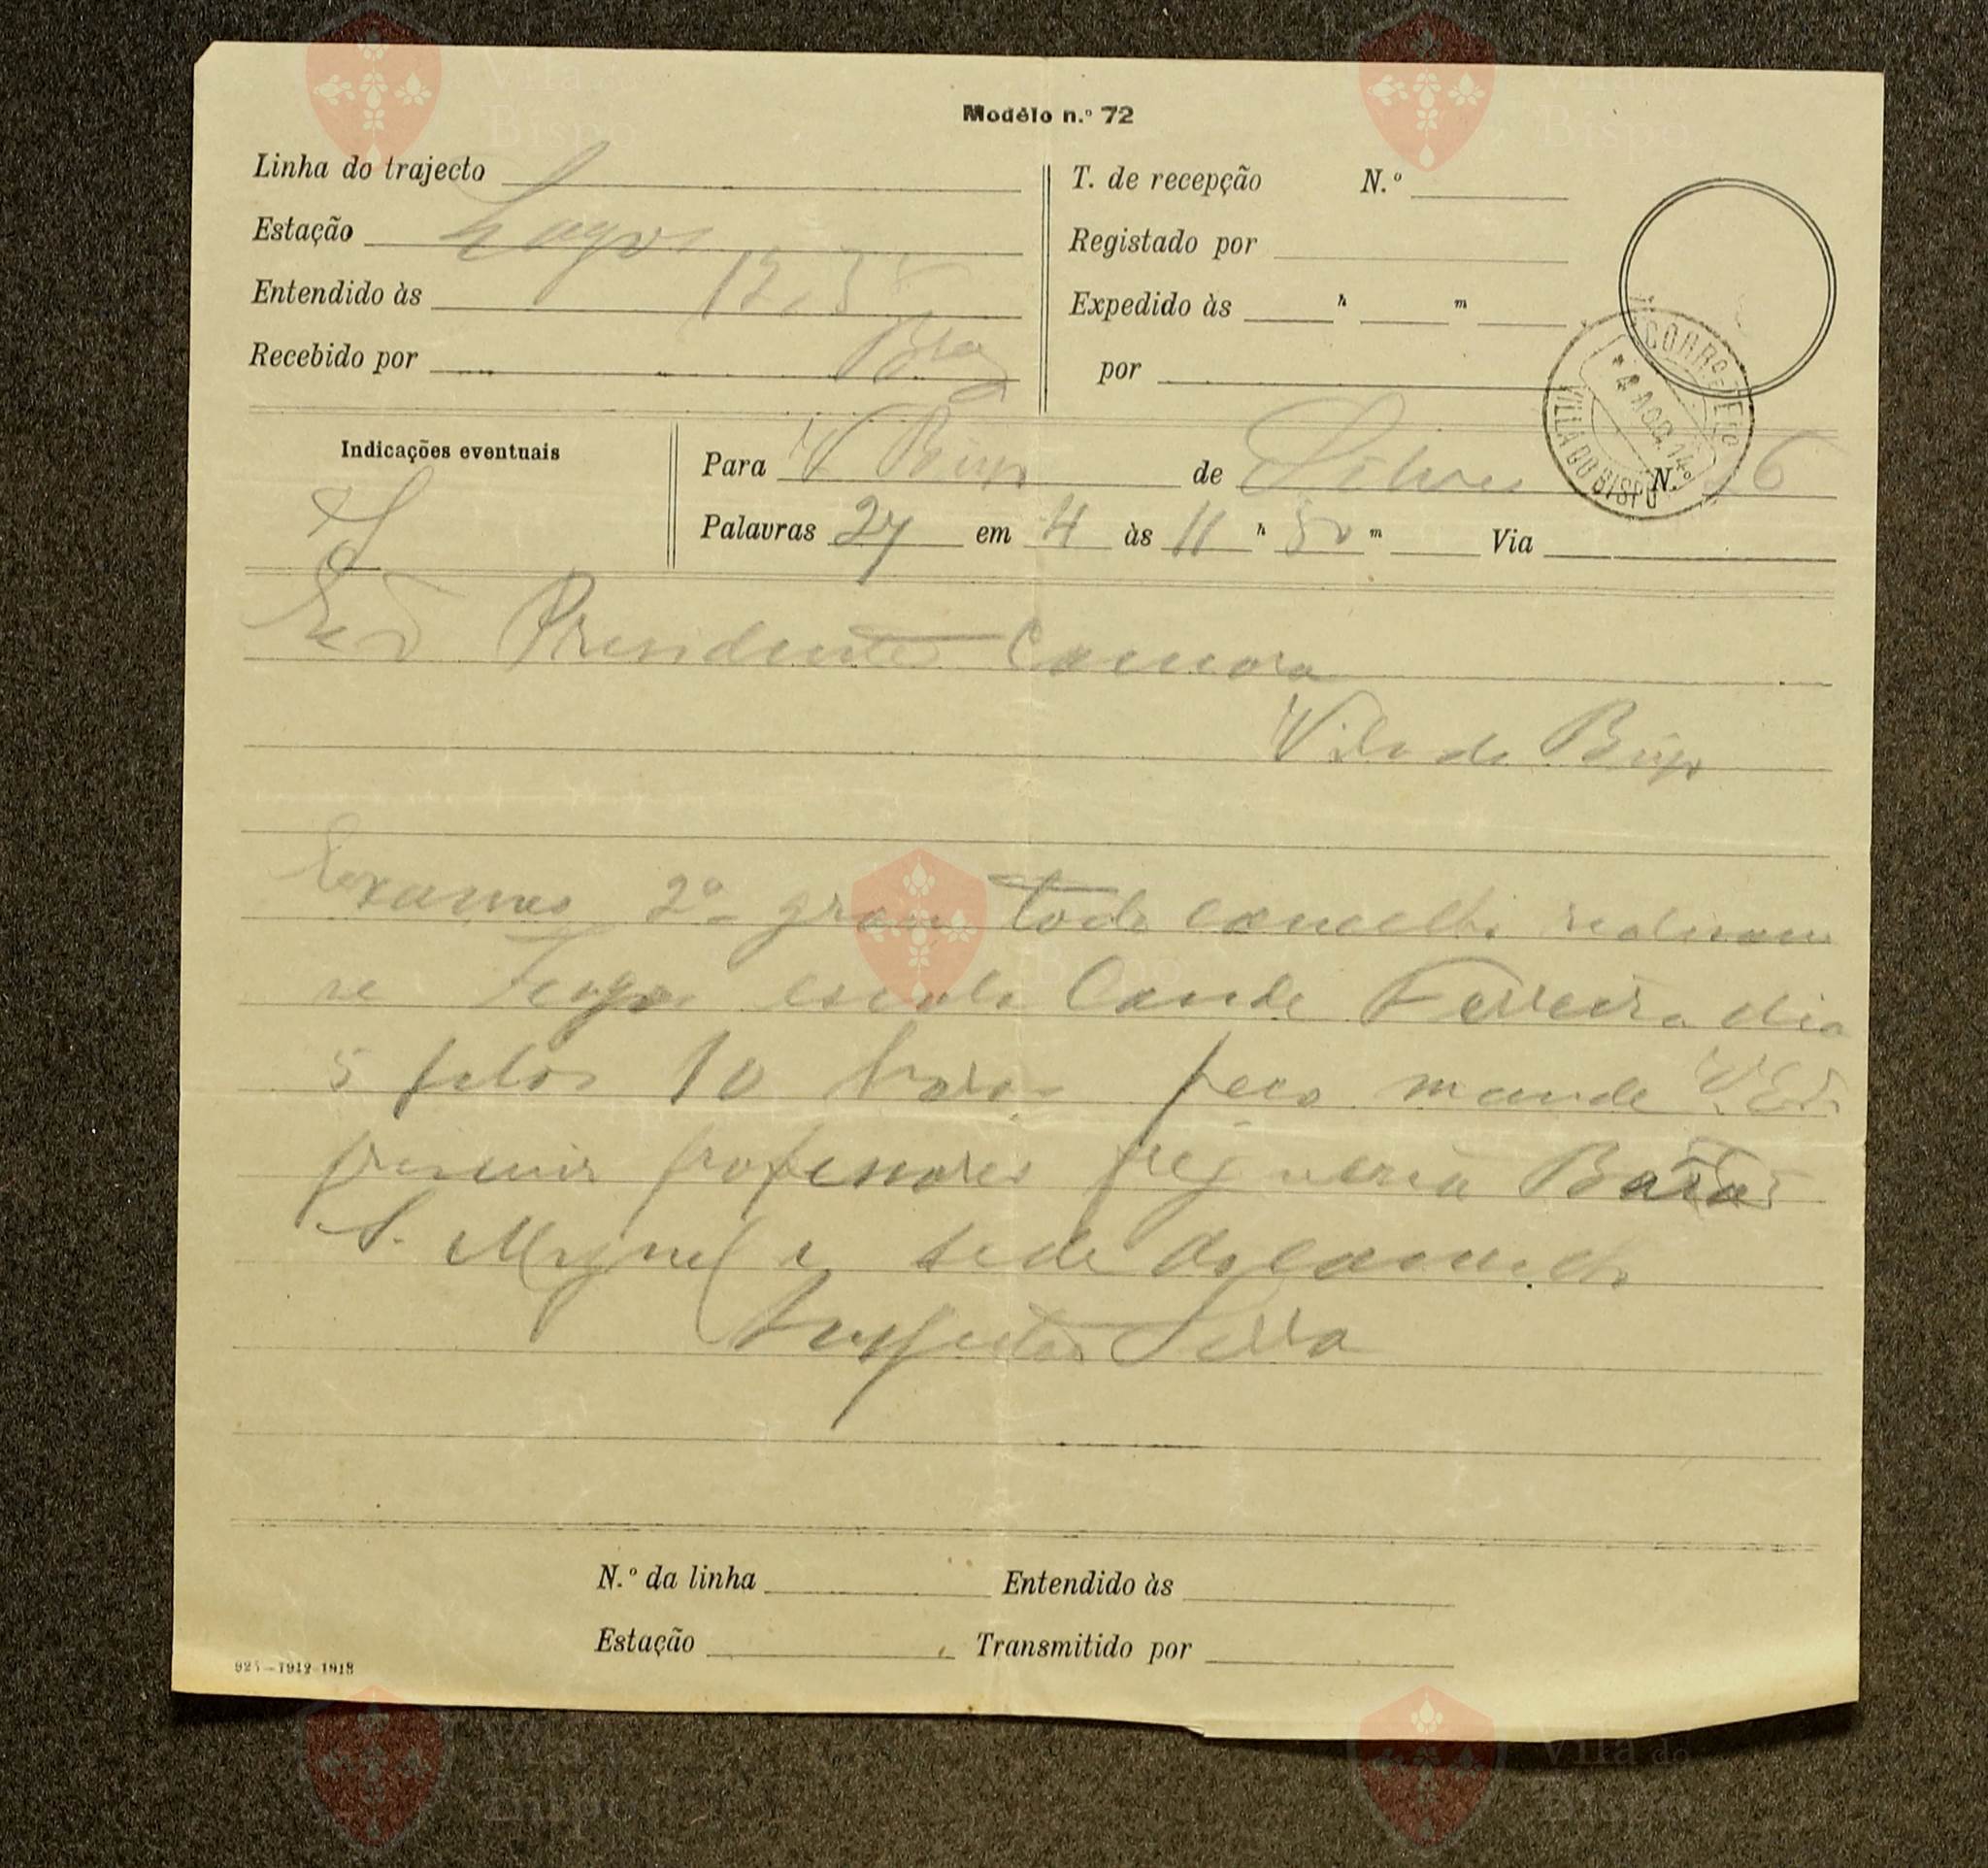 Modêlo n.º 72
Linha do trajecto
Estação Lagos
Entendido às 12,5
Recebido por
T. de recepção N.º
Registado por
Expedido às h m
por
CORRº E TELº
4 AGO. 14
VILA DO BISPO
Indicações eventuais
S
Para V Bispo de Silves N.º 26
Palavras 27 em 4 às 11 h 50 m Via
Presidente Camara
Vila do Bispo
Exames 2º grau todo concelho realisam
se escola Conde Ferreira dia
5 pelas 10 horas peço mande V. Exª
prevenir professores freguesia
S. Miguel e sede do concelho
Inspector Serra
N.º da linha Entendido às
Estação Transmitido por
Vila do
Bispo